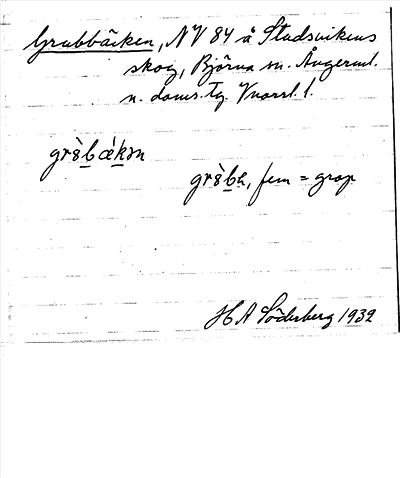 Grubbbäcken, NV 84 å Studsvikens
skog, Björna sn. Ångerml.
n. doms. Tg.
grœ̀bǽkən
grœ̀b, fem = grop
H A Söderberg 1932